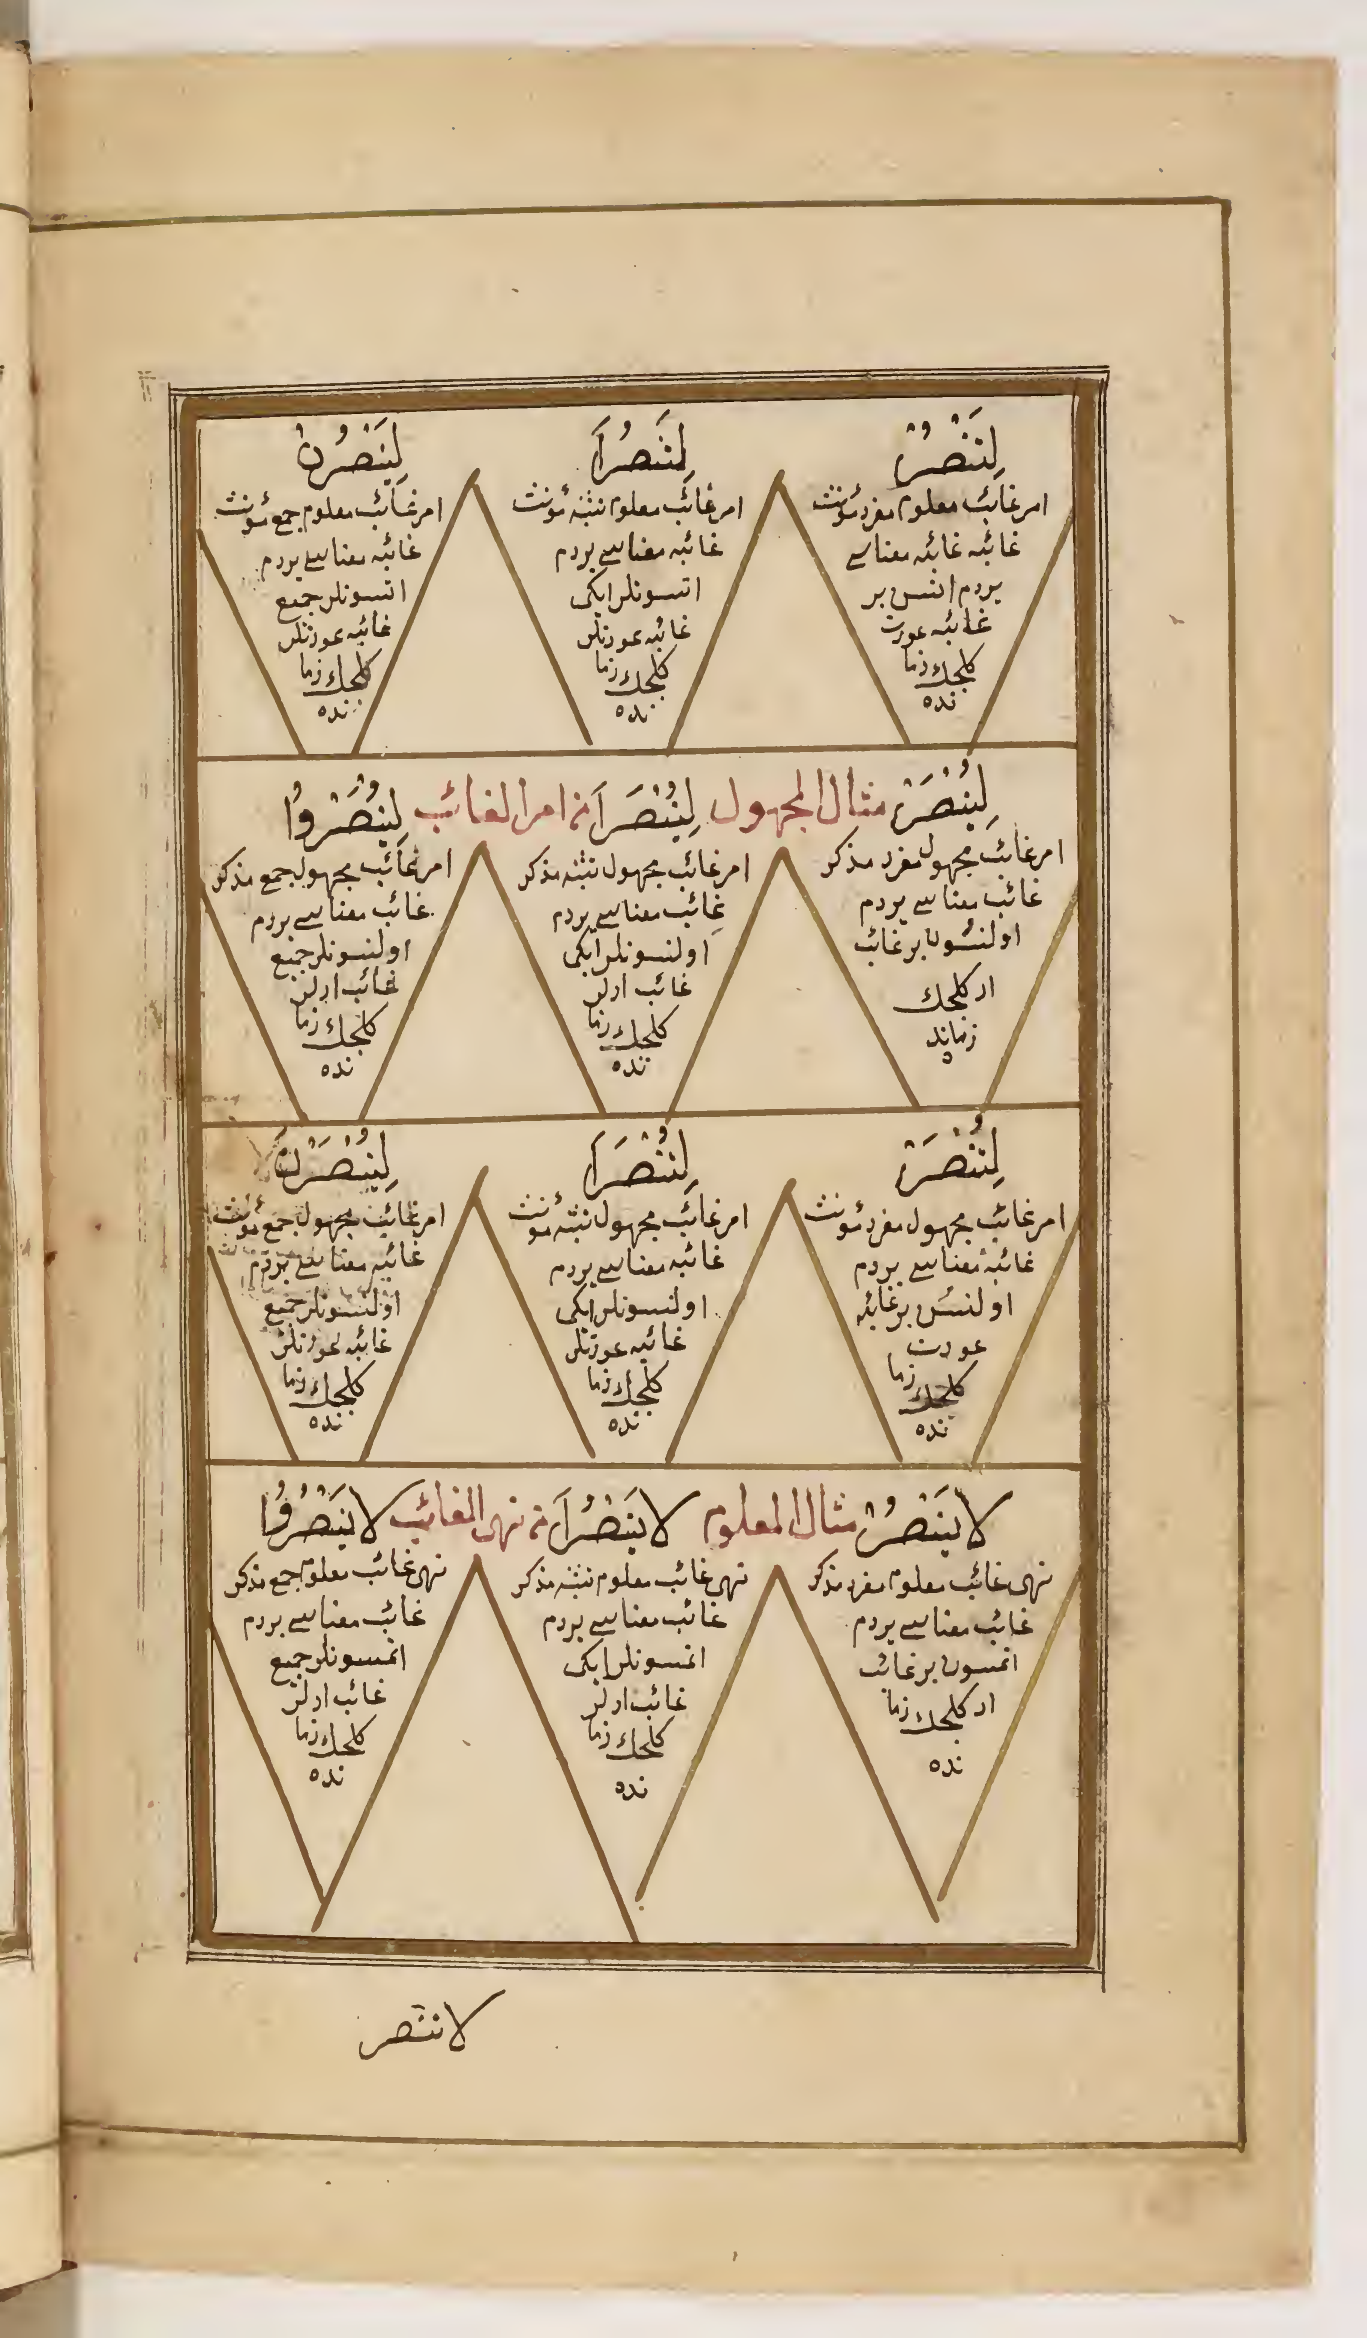 لِتَنْصُرْ
امر غائب معلوم مفرد مؤنث
غائبه غائبه معناسے
يردم اتسن بر
غائبه عورت
كلجك زما
نده
لِتَنْصُرَا
امر غائب معلوم تثنه مؤنث
غائبه معناسے يردم
اتسونلر ايكى
غائبه عورتلر
كلجك زما
نده
لِيَنْصُرْنَ
امر غائب معلوم جمع مؤنث
غائبه معناسے يردم
اتسونلر جميع
غائبه عورتلر
كلجك زما
نده
لِيُنْصَرْ مثال المجهول لِيُنْصَرَا من امر الغائب لِيُنْصَرُوا
امر غائب مجهول مفرد مذكر
غائب معناسے يردم
اولنسون بر غائب
ار كلجك
زمانده
امر غائب مجهول تثنه مذكر
غائب معناسے يردم
اولنسونلر ايكى
غائب ارلر
كلجك زما
نده
امر غائب مجهول جمع مذكر
غائب معناسے يردم
اولنسونلر جميع
غائب ارلر
كلجك زما
نده
لِتُنْصَرْ
امر غائب مجهول مفرد مؤنث
غائبه معناسے يردم
اولنسن بر غائبه
عورت
كلجك زما
نده
لِتُنْصَرَا
امر غائب مجهول تثنه مؤنث
غائبه معناسے يردم
اولنسونلر ايكى
غائبه عورتلر
كلجك زما
نده
لِيُنْصَرْنَ
امر غائب مجهول جمع مؤنث
غائبه معناسے يردم
اولنسونلر جميع
غائبه عورتلر
كلجك زما
نده
لا يَنْصُرْ مثال المعلوم لا يَنْصُرَا من نهى الغائب لا يَنْصُرُوا
نهى غائب معلوم مفرد مذكر
غائب معناسے يردم
اتمسون بر غائب
ار كلجك زما
نده
نهى غائب معلوم تثنه مذكر
غائب معناسے يردم
اتمسونلر ايكى
غائب ارلر
كلجك زما
نده
نهى غائب معلوم جمع مذكر
غائب معناسے يردم
اتمسونلر جميع
غائب ارلر
كلجك زما
نده
لا تنصر